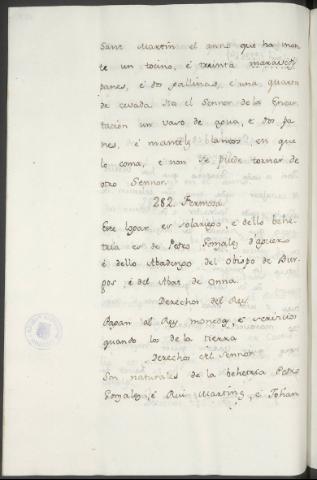 Sant Martin el anno que ha mon
te un tocino, e treinta maravedis
panes, e dos gallinas, e una quarta
de cevada. Ha el Sennor de la Encar
tacion un vaso de agua, e dos pa
nes, e manteles blancos en que
lo coma, e non se puede tornar de
otro Sennor.
282. Fermosa
Este logar es solariego, e dello behe
tria es de Pedro Gonzalez d'aguero
e dello Abadengo del Obispo de Bur
gos, e del Abat de Onna.
Derechos del Rey
Pagan al Rey moneda, e servicios
quando los de la tierra
Derechos del Sennor
Son naturales de la behetria Pedro
Gonzalez, e Rui Martinez, e Johan